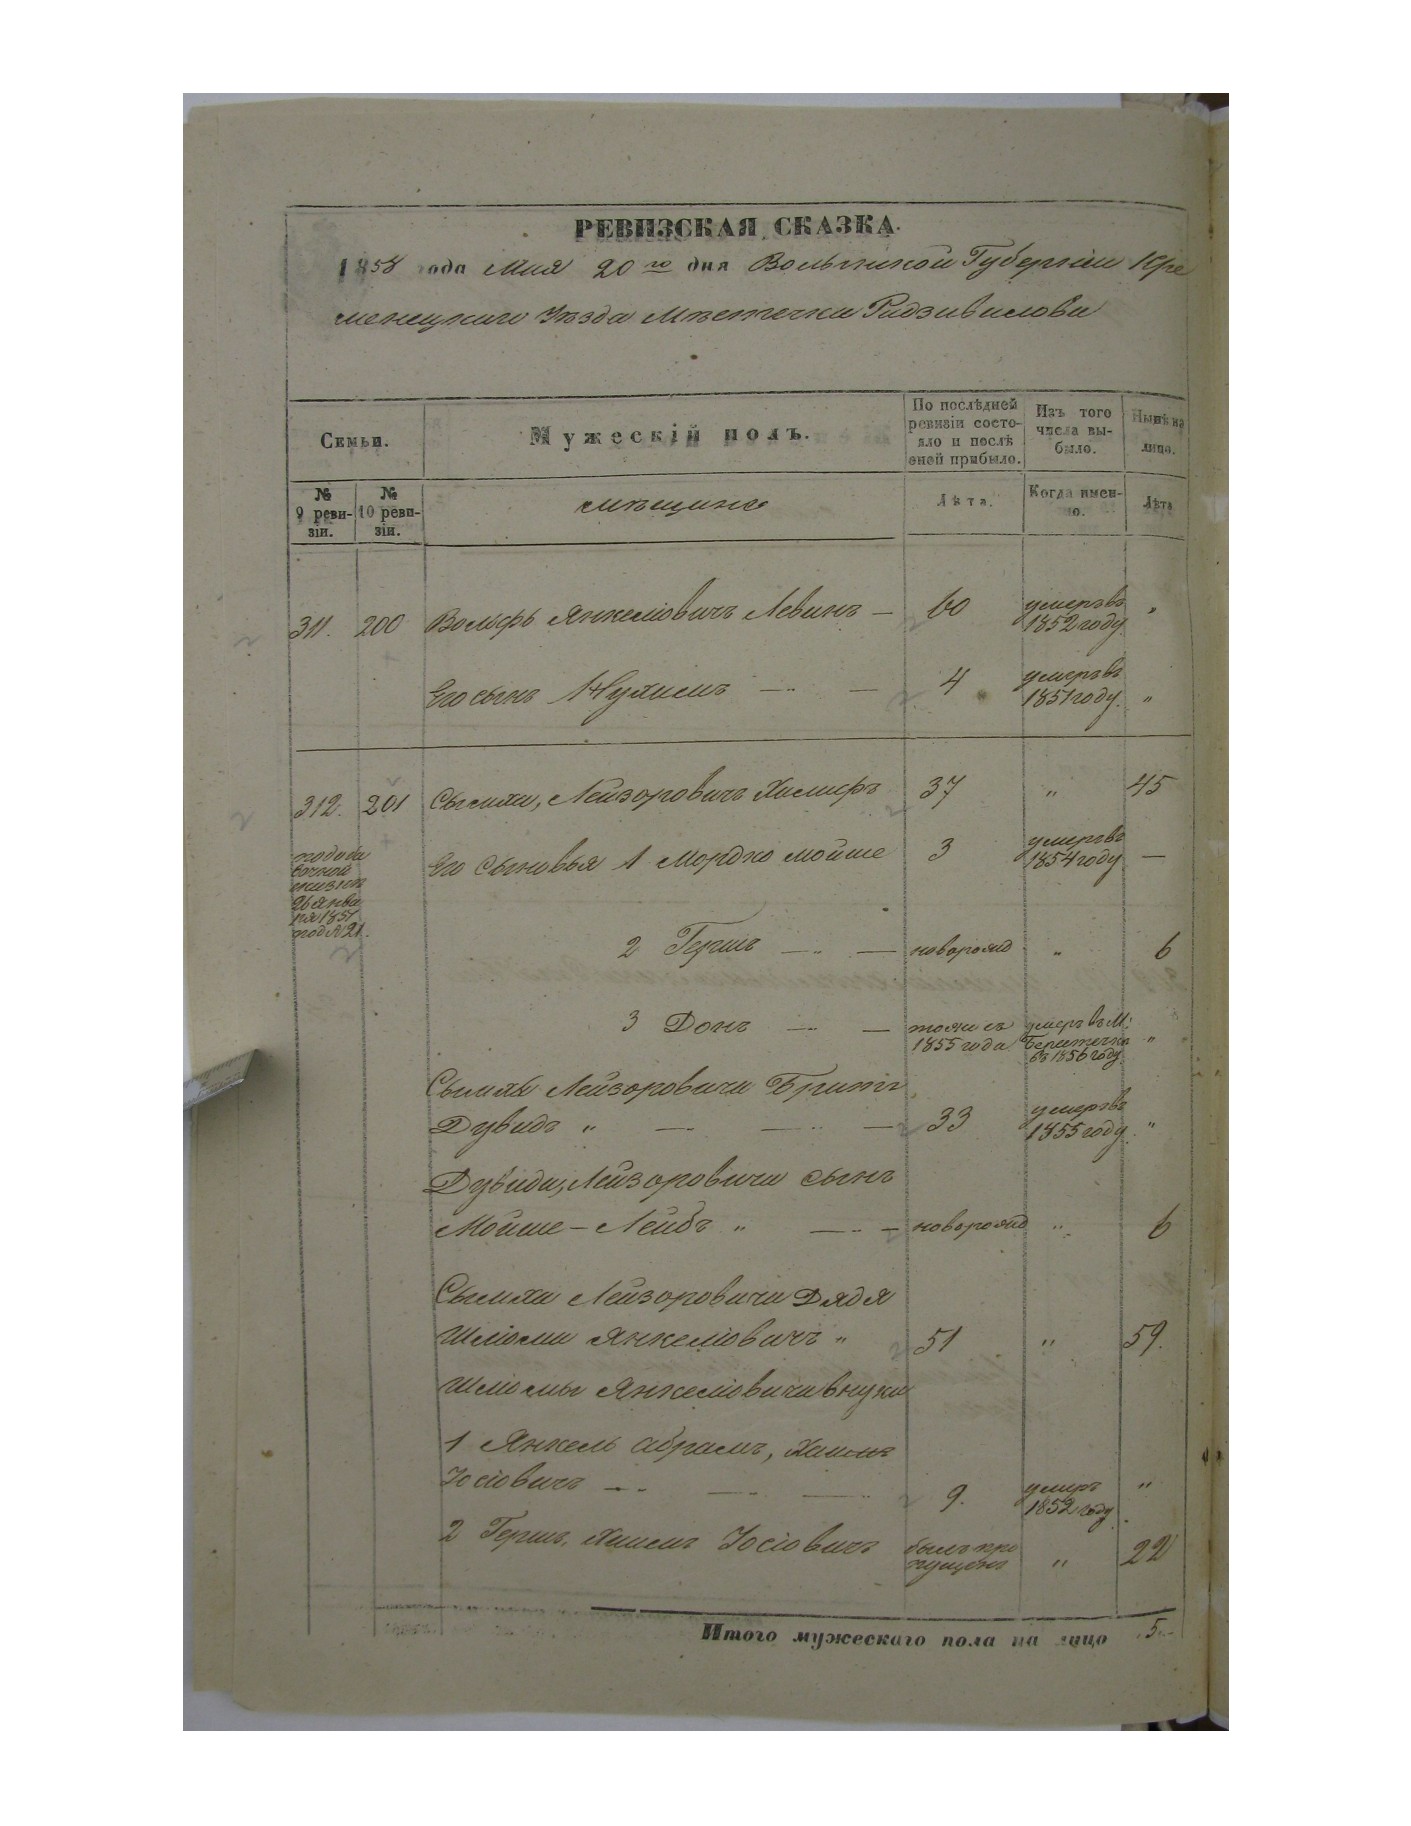 РЕВИЗСКАЯ СКАЗКА.
1858 года Мая 20го дня Волынской Губерніи Кре
менецкаго Уѣзда Мѣстечка Радзивилова
Семьи.
Мужескій полъ.
По послѣдней ревизіи состояло и послѣ оной прибыло.
Изъ того числа выбыло.
Нынѣ на лицо.
№ 9 ревизіи.
№ 10 ревизіи.
мѣщане
Лѣта.
Когда именно.
Лѣта
311. 200 Вольфъ Янкеліовичъ Левинъ — 60 умеръ въ 1852 году "
Его сынъ 4 умеръ въ 1851 году. "
312. 201 Сымха, Лейзоровичъ 37 " 45
26 Янва
ря 1851
год № 21.
Его Сыновья 1 Мордко Мойше 3 умеръ въ 1854 году —
2 Герш — новорожд " 6
3 Донъ — тоже съ 1855 года умеръ въ М: Берестечка въ 1856 году "
Сымхи Лейзоровича Братъ
Дувидъ " — 33 умеръ въ 1855 году. "
Дувида, Лейзоровича сынъ
Мойше-Лейбъ " — новорожд " 6
Сымхи Лейзоровича Дядя
Шліома Янкеліовичъ " 51 " 59.
Шліомы Янкеліовича внуки
1 Янкель Абрамъ, Хаимъ
Іосіовичъ — 9. умеръ 1852 году "
2 Герш, Хаимъ Іосіовичъ былъ пропущенъ " 22
Итого мужескаго пола на лицо 5